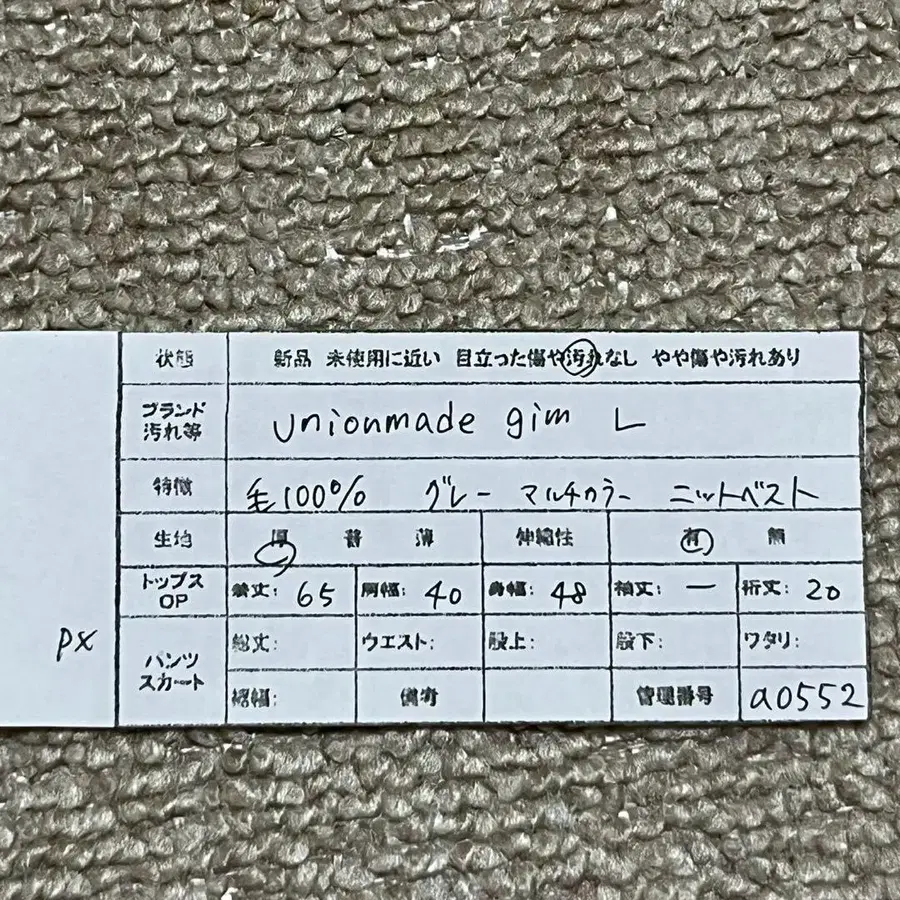 状態 新品 未使用に近い 目立った傷や汚れなし やや傷や汚れあり
ブランド
汚れ等
unionmade gim L
特徴 毛100% グレー マルチカラー ニットベスト
生地 厚 普 薄 伸縮性 有 無
トップス
OP
着丈: 65 肩幅: 40 身幅: 48 袖丈: ー 裄丈: 20
px
パンツ
スカート
総丈: ウエスト: 股上: 股下: ワタリ:
裾幅: 備考 管理番号 a0552